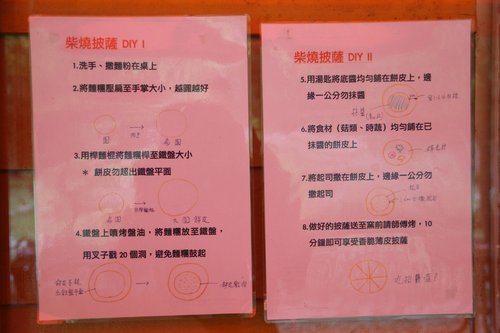 柴燒披薩 DIY I
1.洗手、撒麵粉在桌上
2.將麵糰壓扁至手掌大小，越圓越好
圓
扁圓
3.用桿麵棍將麵糰桿至鐵盤大小
* 餅皮勿超出鐵盤平面
扁圓
大圓
4.鐵盤上噴烤盤油，將麵糰放至鐵盤，
用叉子戳 20 個洞，避免麵糰鼓起
柴燒披薩 DIY II
5.用湯匙將底醬均勻鋪在餅皮上，邊
緣一公分勿抹醬
6.將食材（菇類、時蔬）均勻鋪在已
抹醬的餅皮上
7.將起司撒在餅皮上，邊緣一公分勿
撒起司
8.做好的披薩送至窯前請師傅烤，10
分鐘即可享受香脆薄皮披薩